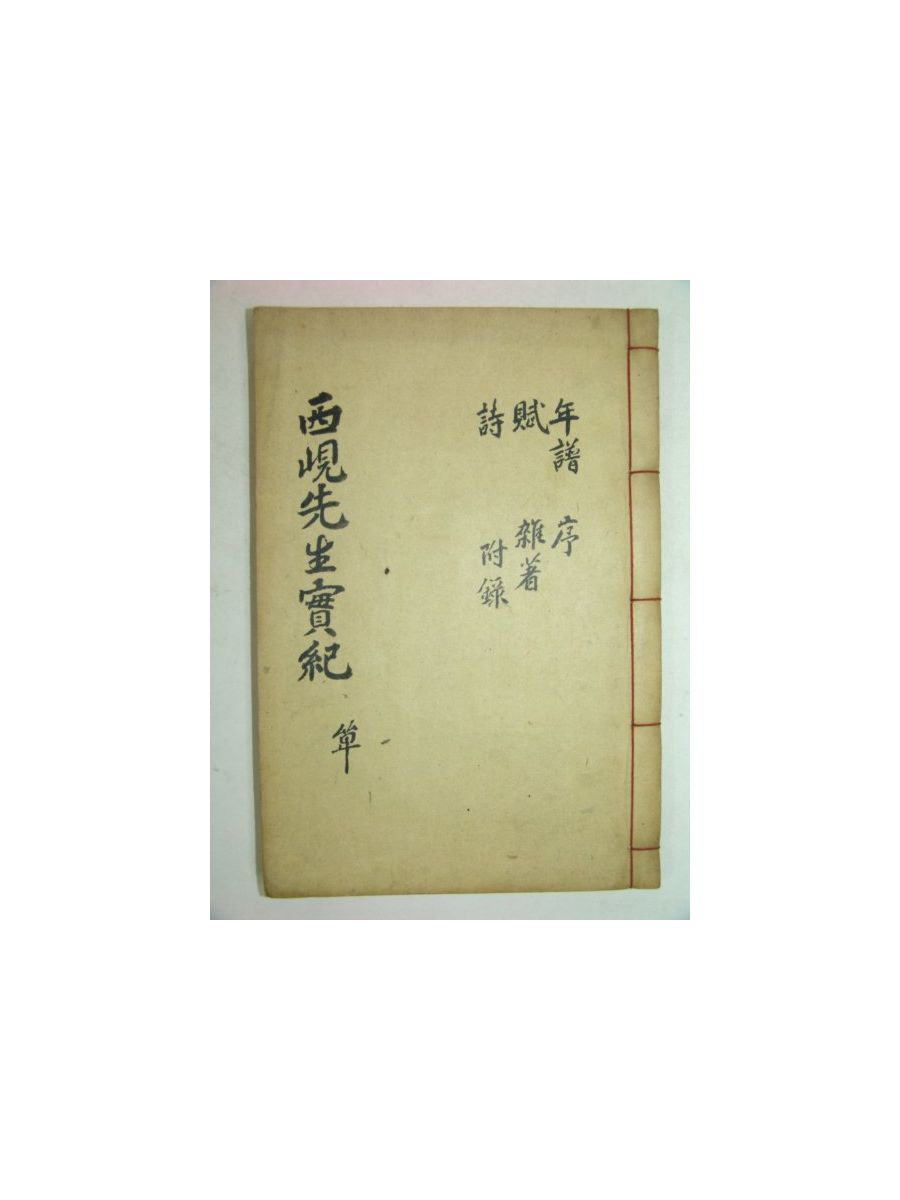 年譜 序
賦 雜著
詩 附錄
西峴先生實紀
單